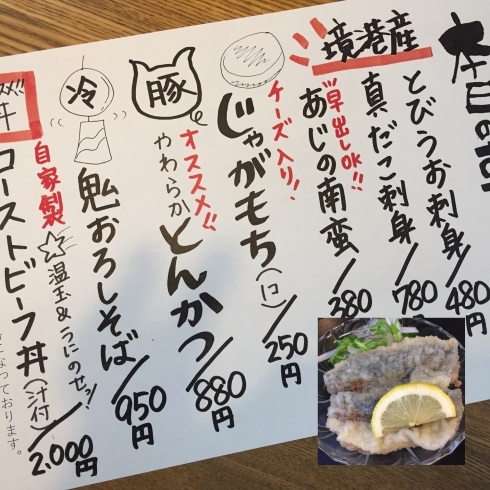 本日の
境港産
とびうお刺身/480円
真だこ刺身/780円
早出しOK!!
あじの南蛮/380
チーズ入り!
じゃがもち(1コ)/250円
豚
オススメ!!
やわらか
とんかつ/880円
冷
鬼おろしそば/950円
丼
自家製
☆温玉&うにのせ!
ローストビーフ丼(汁付)/2,000円
なっております。